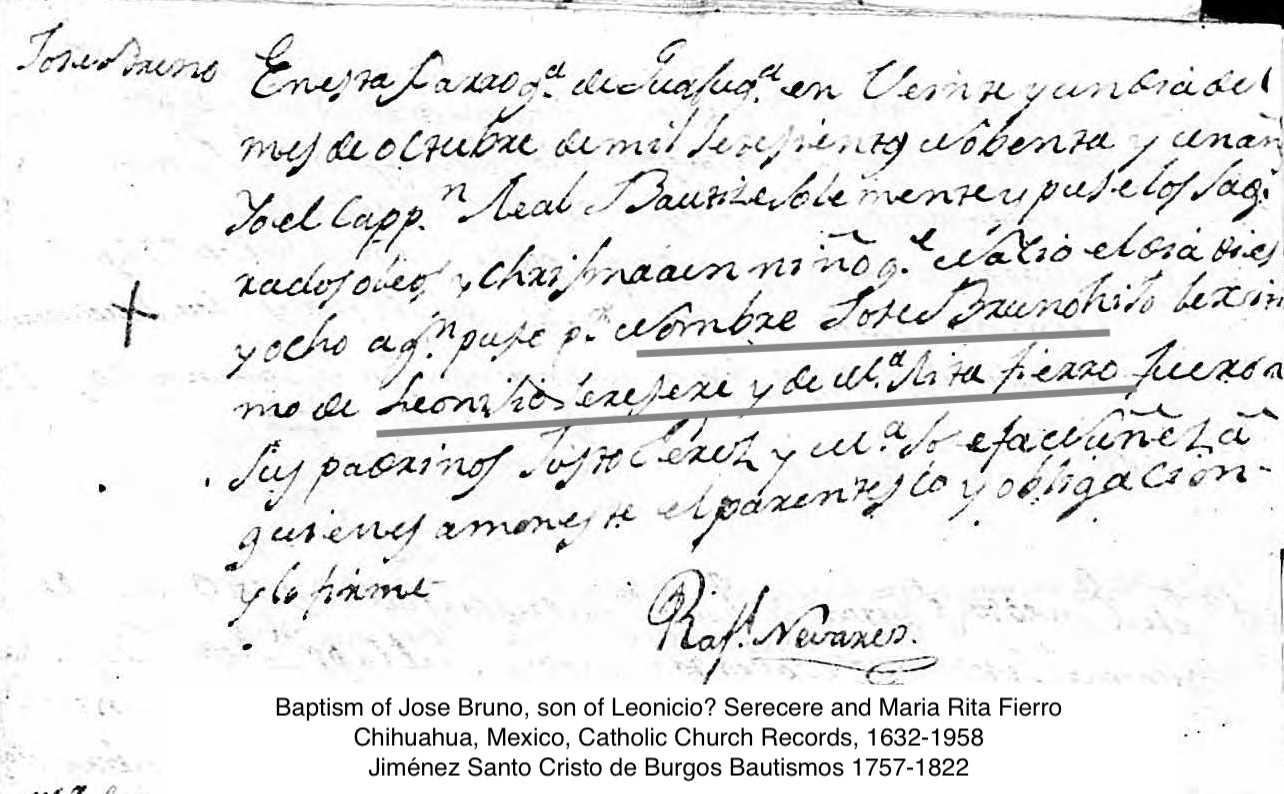 Jose Bruno
En esta Parroq.a de Guajuq.a en Veinte y un dia del
mes de octubre de mil setesientos nobenta y un añ
Yo el Capp.n Real Bautize solemente y puse los sag.
rados oleos y chrisma a un niño q.e nacio el dia dies
y ocho a q.n puse p.r nombre Jose Bruno hijo lexiti
mo de Leonisio Seresere y de M.a Rita fierro fueron
sus padrinos Justo Perez y M.a Josefa Nuñez â
quienes amoneste el parentesco y obligacion
y lo firme
Raf.l Nevares.
Baptism of Jose Bruno, son of Leonicio? Serecere and Maria Rita Fierro
Chihuahua, Mexico, Catholic Church Records, 1632-1958
Jiménez Santo Cristo de Burgos Bautismos 1757-1822